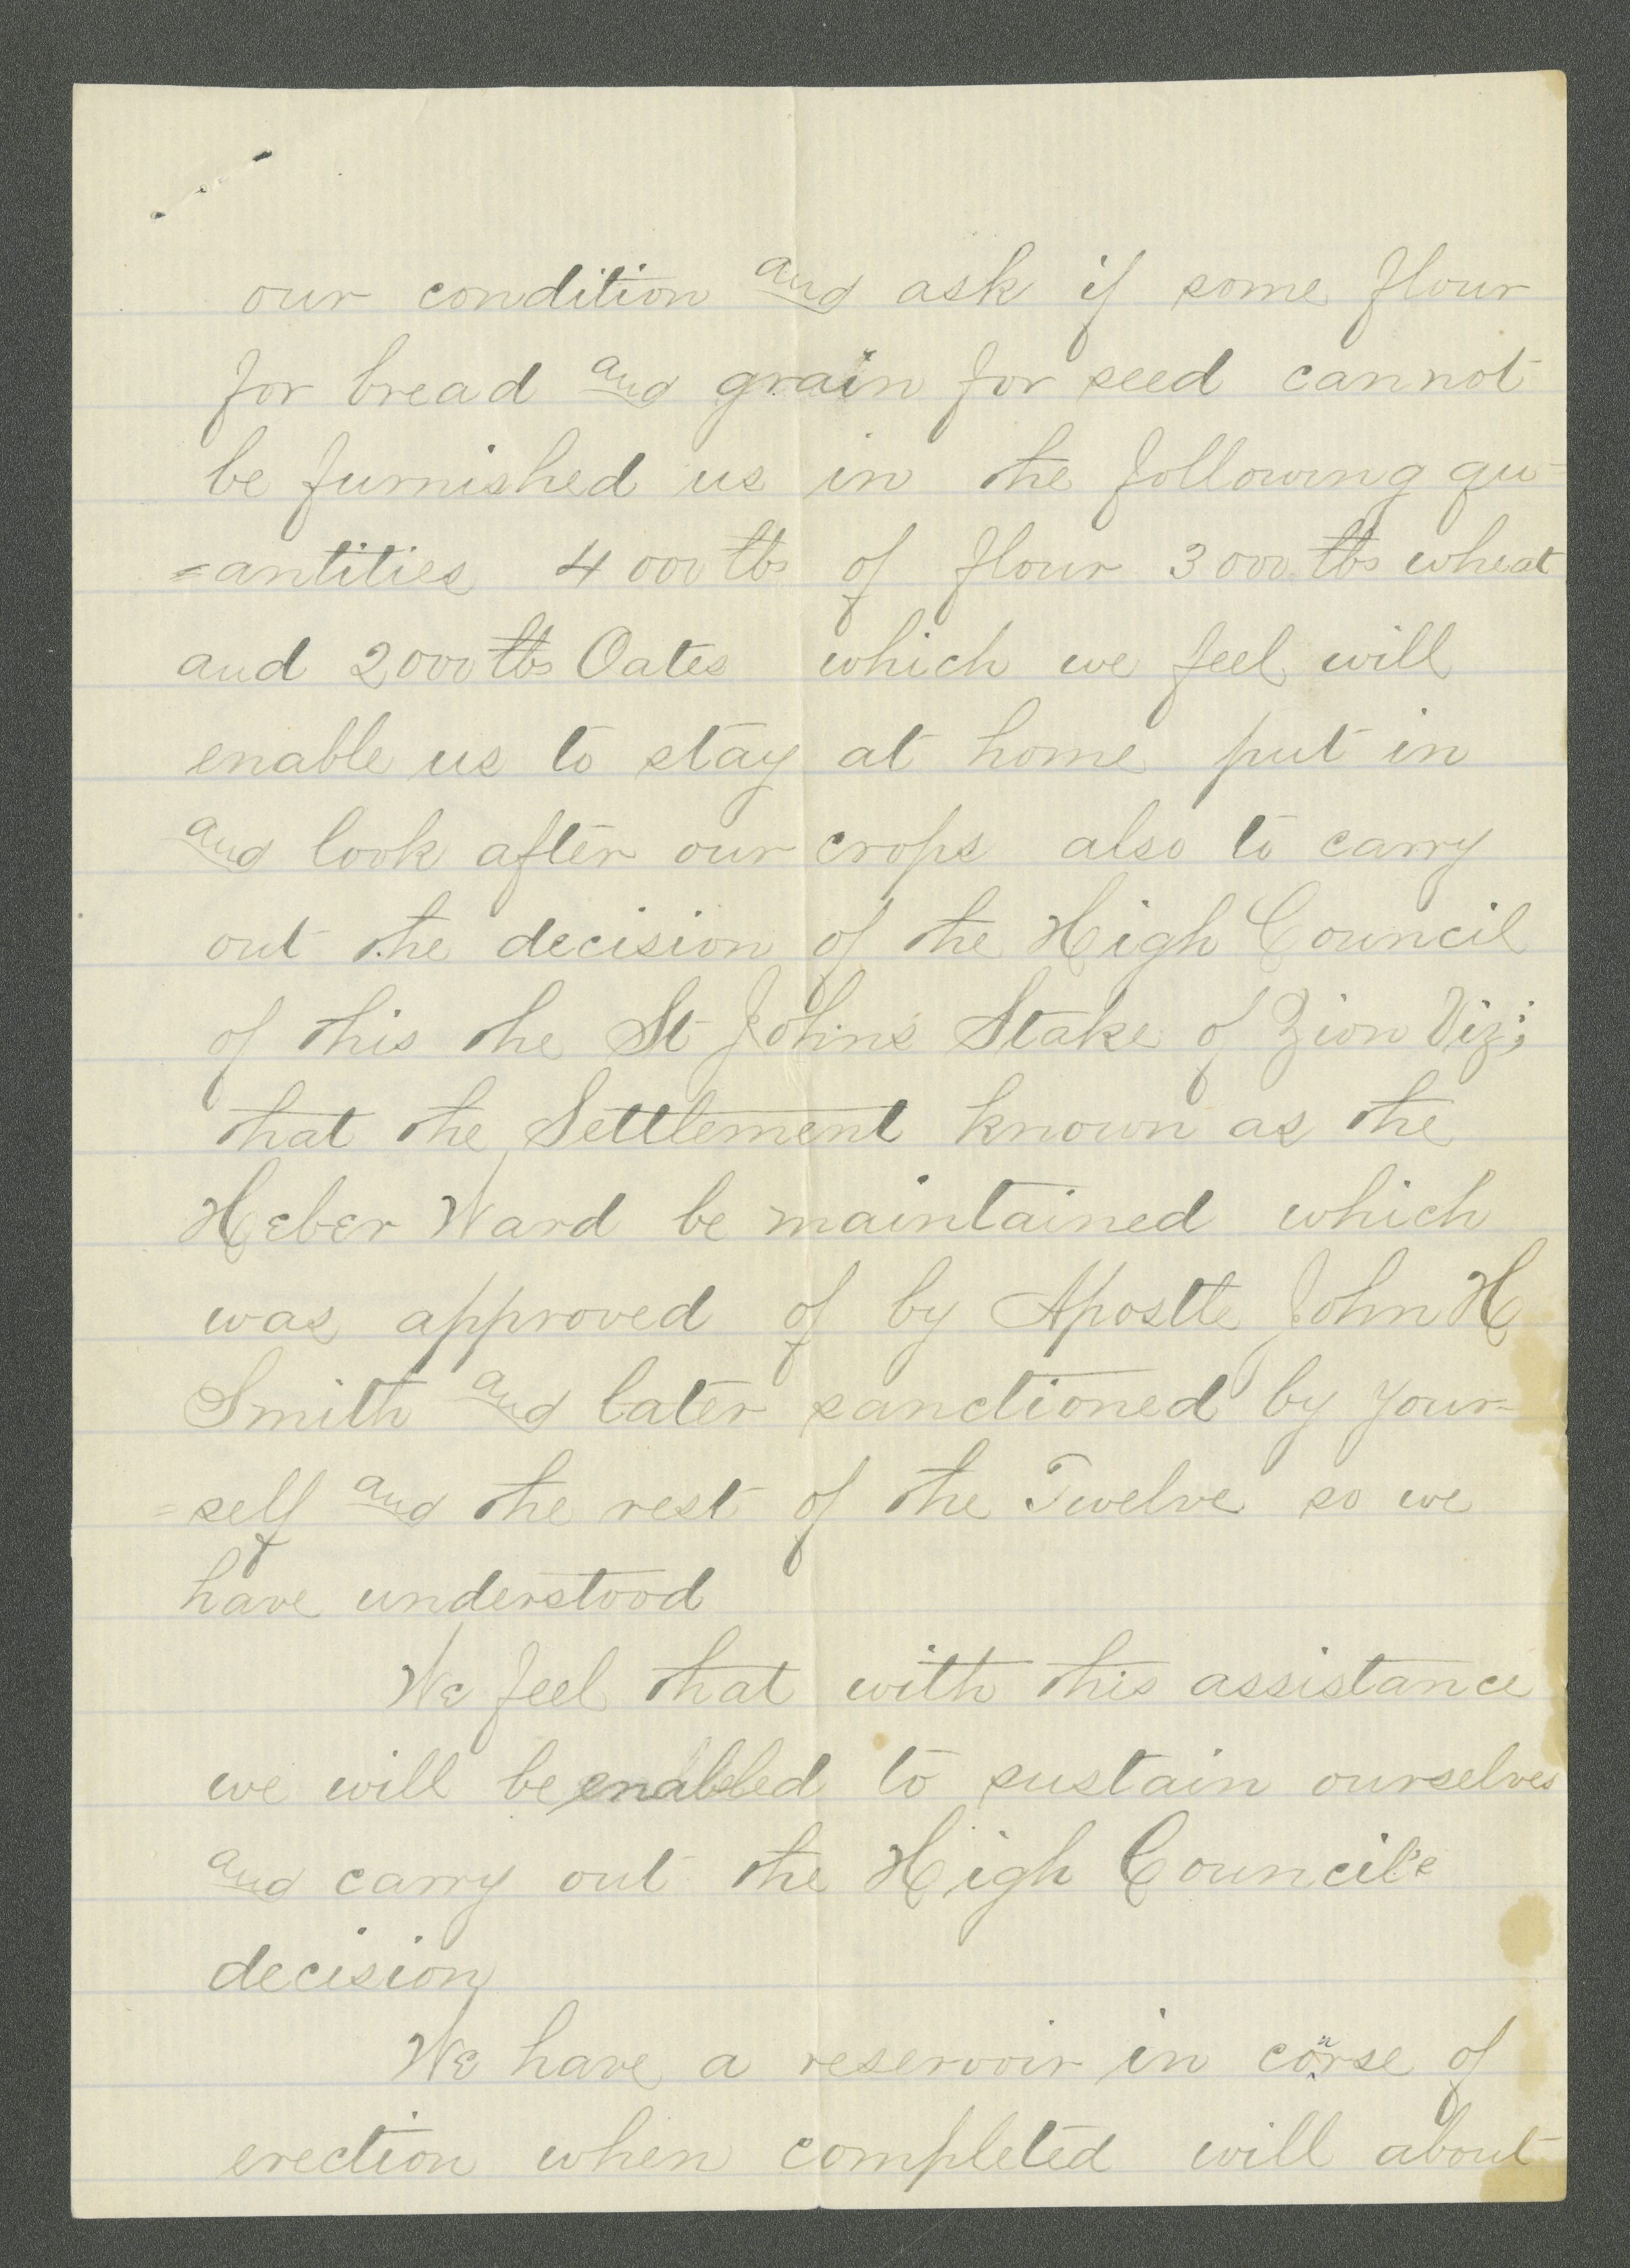 our condition and ask if some flour
for bread and grain for seed cannot
be furnished us in the following qu=
=antities 4000 lbs of flour 3000 lbs wheat
and 2000 lbs Oates which we feel will
enable us to stay at home put in
and look after our crops also to carry
out the decision of the High Council
of this the St Johns Stake of Zion Viz;
that the Settlement known as the
Heber Ward be maintained which
was approved of by Apostle John H
Smith and later sanctioned by your=
=self and the rest of the Twelve so we
have understood
We feel that with this assistance
we will be enabled to sustain ourselves
and carry out the High Council's
decision
We have a reservoir in course of
erection when completed will about